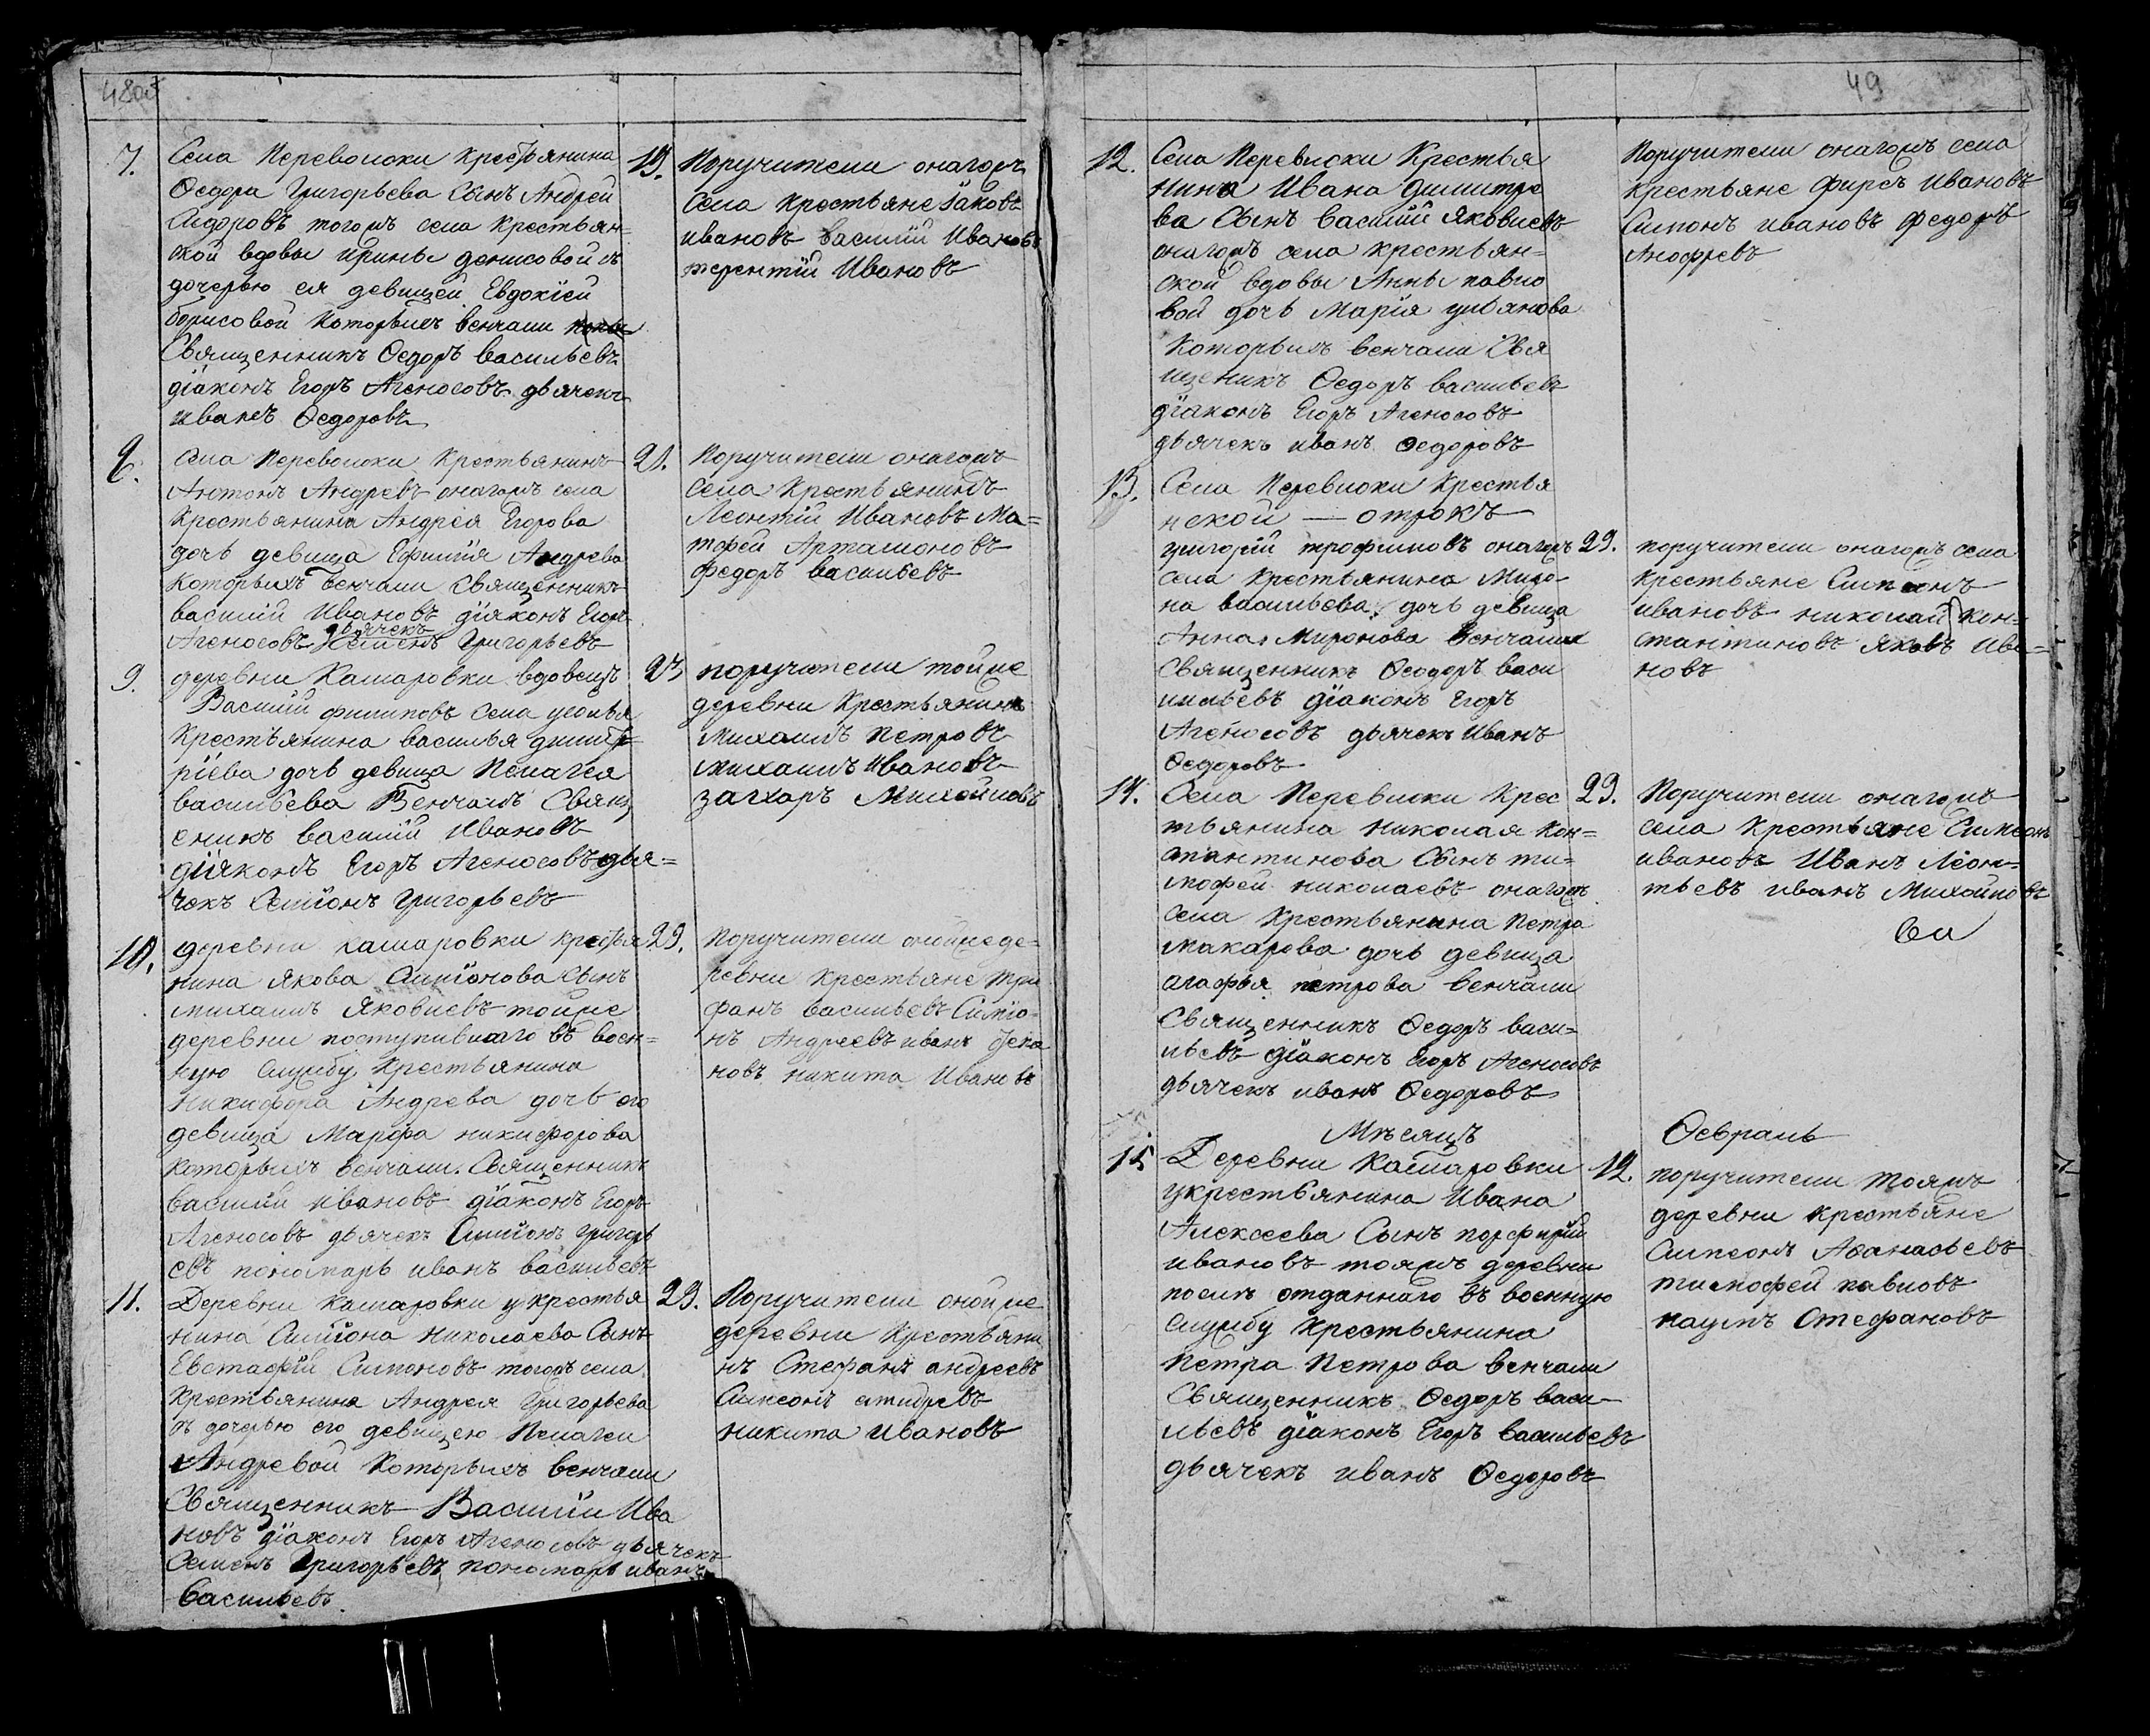 48об
7.
Села Переволоки Крестьянина
Ѳедора Григорьева Сынъ Андрей
Ѳедоровъ тогожъ села Крестьян-
ской вдовы Ирины денисовой съ
дочерью ея девицей Евдокіей
борисовой Которыхъ венчали
Священникъ Ѳедоръ Васильевъ
діаконъ Егоръ Агеносовъ дьячекъ
иванъ Ѳедоровъ
19.
Поручители онагожъ
Села Крестьяне Яковъ
ивановъ Василий Ивановъ
терентий Ивановъ
8.
Села Переволоки Крестьянинъ
Антонъ Андревъ онагожъ села
Крестьянина Андрея Егорова
дочь девица Ефимия Андрева
которыхъ венчали Священникъ
василий Ивановъ діяконъ Егоръ
Агеносовъ дьячекъ Семенъ Григорьевъ
21.
Поручители онагожъ
Села Крестьянинъ
Леонтий Ивановъ Ма=
тфей Артамоновъ
Федоръ Васильевъ
9.
деревни Кашаровки вдовецъ
Василий филиповъ Села
Крестьянина василья димит=
ріева дочь девица Пелагея
васильева Венчалъ Свящ
еникъ василий Ивановъ
діяконъ Егоръ Агеносовъ дья=
чекъ Симіонъ Григорьевъ
23
поручители тойже
деревни Крестьянинъ
Михаилъ Петровъ
михаилъ Ивановъ
захаръ Михайловъ
10.
деревни кашаровки крестья
нина Якова Симіонова Сынъ
михаилъ Яковлевъ тойже
деревни поступившаго въ воен=
ную Службу Крестьянина
Никифора Андрева дочь его
девица Марфа никифорова
которыхъ венчали Священникъ
василий ивановъ діаконъ Егоръ
Агеносовъ дьячекъ Симіонъ григорь
евъ пономарь иванъ васильевъ
29.
Поручители онойже де=
ревни Крестьяне
фанъ васильевъ Симіо-
нъ Андреевъ иванъ
новъ никита Ивановъ
11.
Деревни Кашаровки у крестья
нина Симіона Николаева Сынъ
Евстафій Симоновъ тогожъ села
Крестьянина Андрея Григорьева
съ дочерью его девицею Пелагеи
Андревой Которыхъ венчали
Священникъ Василии Ива
новъ діаконъ Егоръ Агеносовъ дьячекъ
Семенъ Григорьевъ пономарь иванъ
Васильевъ
29.
Поручители онойже
деревни Крестьяни
нъ Стефанъ андреевъ
Симеонъ
никита ивановъ
49
12.
Села Переволоки Крестья
нина Ивана димитре
ва Сынъ Василий Яковлевъ
онагожъ села крестьян=
ской вдовы Анны павло
вой дочь Марія ульянова
Которыхъ венчали Свя
щеникъ Ѳедоръ васильевъ
діаконъ Егоръ Агеносовъ
дьячекъ иванъ Ѳедоровъ
Поручители онагожъ села
крестьяне Фирсъ Ивановъ
Симонъ ивановъ федоръ
13.
Села Переволоки Крестья
нской — отрокъ
григорий трофимовъ онагожъ
села крестьянина Миро-
на васильева дочь девица
Анна Миронова венчали
Священникъ Ѳеодоръ васи
льевъ діаконъ Егоръ
Агеносовъ дьячекъ Иванъ
Ѳедоровъ
29.
поручители онагожъ села
крестьяне Симеонъ
ивановъ николай Кон-
стантиновъ яковъ ива=
новъ
14.
Села Переволоки Крес
тьянина Николая Кон=
стантинова Сынъ ти=
мофей николаевъ онагожъ
села Крестьянина Петра
макарова дочь девица
агафья петрова венчали
Священникъ Ѳедоръ васи=
льевъ діаконъ Егоръ Агеносовъ
дьячекъ иванъ Ѳедоровъ
29.
Поручители онагожъ
села Крестьяне Симеонъ
ивановъ Иванъ Леон-
тьевъ иванъ Михайловъ
Мѣсяцъ
Ѳевраль
15
Деревни Кашаровки
у крестьянина Ивана
Алексеева Сынъ порфирий
ивановъ тояжъ деревни
отданнаго въ военную
службу Крестьянина
Петра Петрова венчали
Священникъ Ѳедоръ васи-
льевъ діаконъ Егоръ Васильевъ
дьячекъ иванъ Ѳедоровъ
12.
поручители тояжъ
деревни крестьяне
Симеонъ Аѳанасьевъ
тимофей павловъ
наумъ Стефановъ